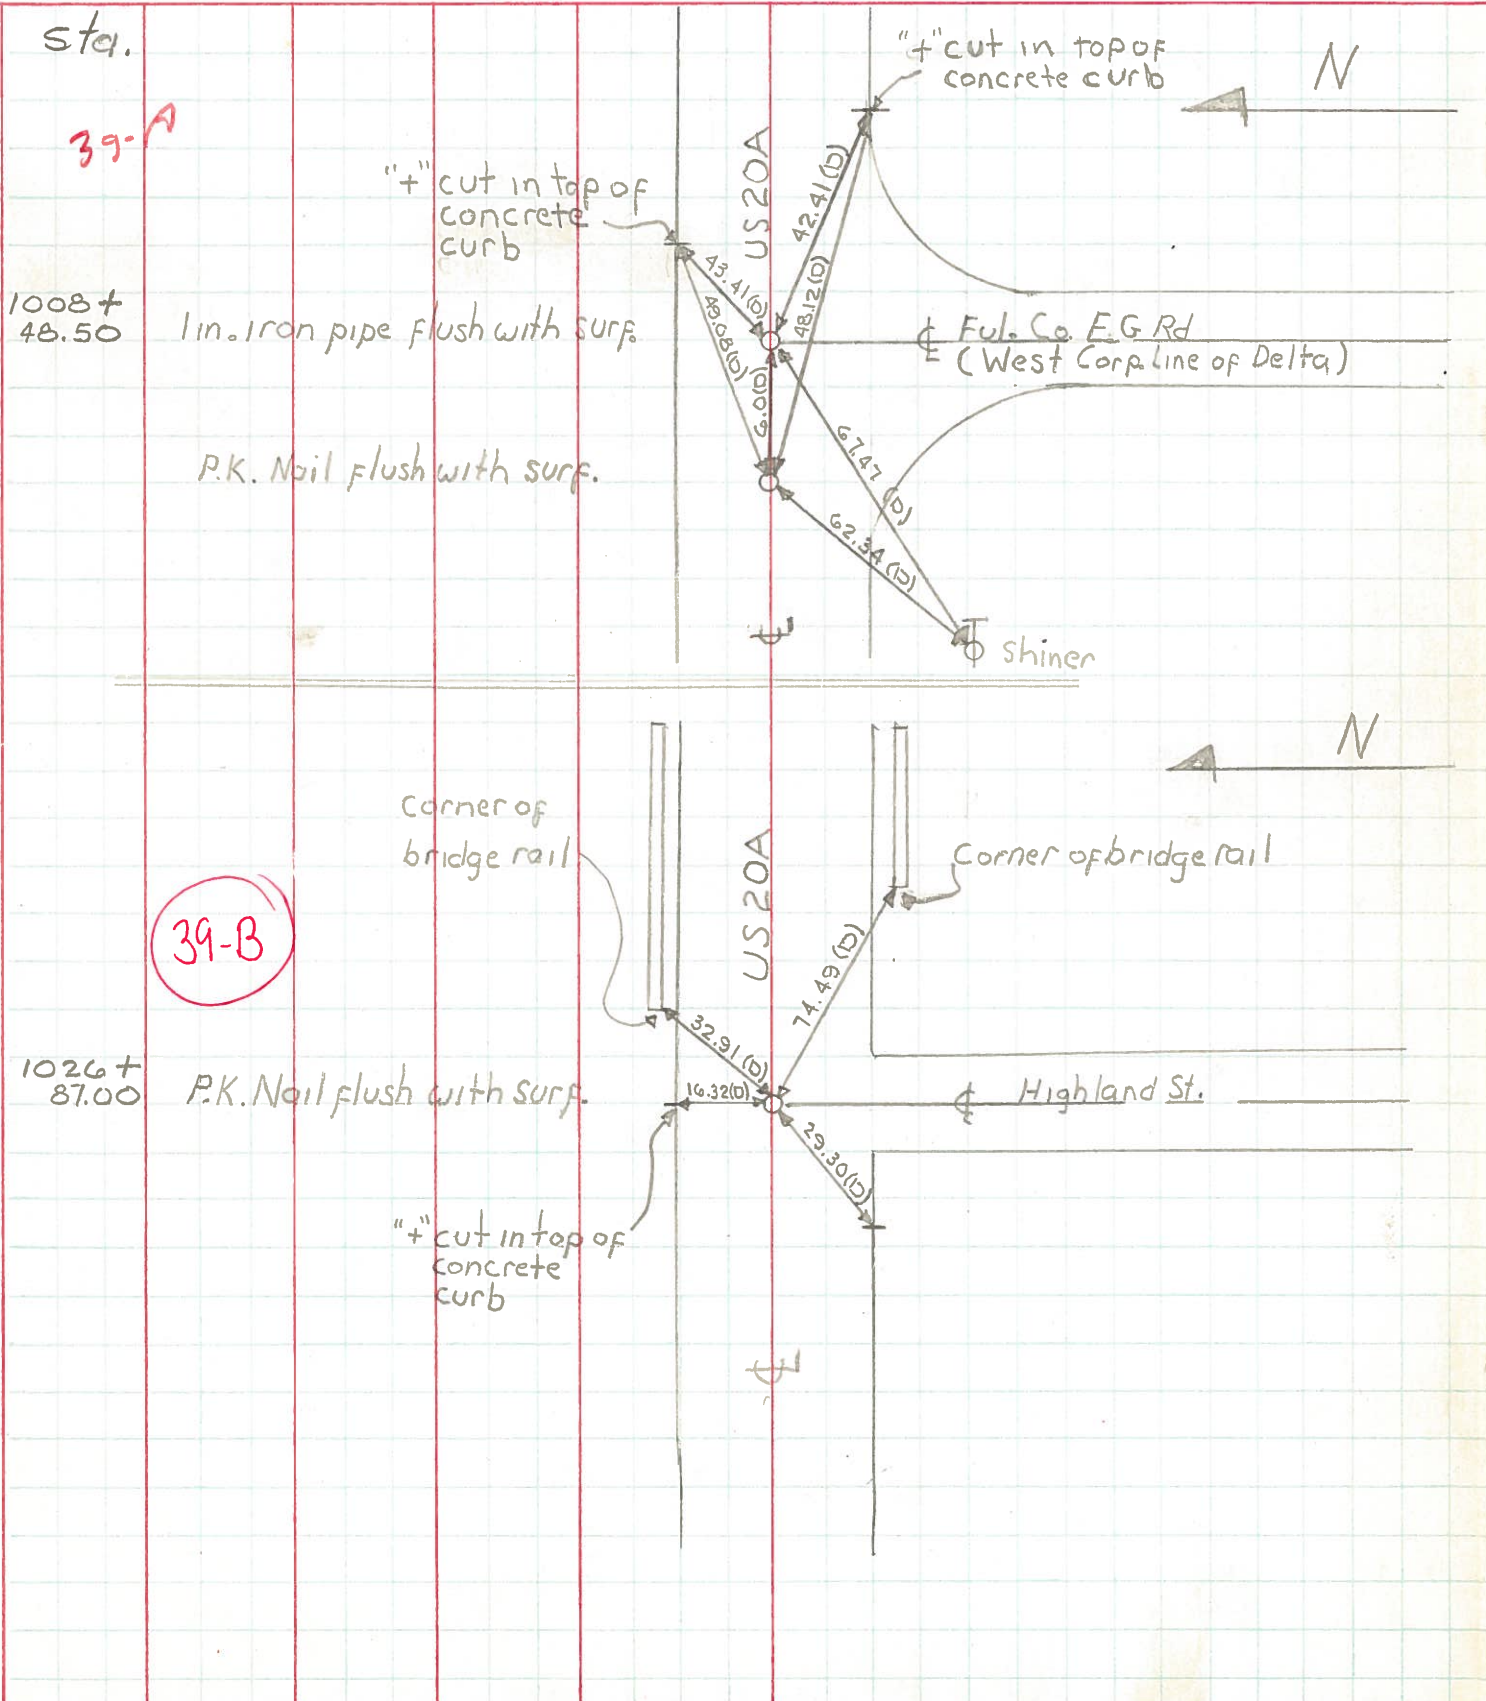 Sta.
39-A
"+" cut in top of
concrete curb
N
"+" cut in top of
concrete
curb
US 20A
42.41(D)
43.41(D)
48.12(D)
49.08(D)
6.0(D)
1008+
48.50
1 in. iron pipe flush with surf.
℄ Ful. Co. E.G Rd
(West Corp. Line of Delta)
P.K. Nail flush with surf.
67.47 (D)
62.34 (D)
℄
Shiner
N
Corner of
bridge rail
US 20A
Corner of bridge rail
39-B
74.49 (D)
32.91 (D)
1026+
87.00
P.K. Nail flush with surf.
16.32(D)
℄ Highland St.
29.30(D)
"+" cut in top of
concrete
curb
℄